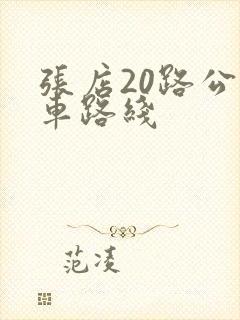 張店20路公
車路綫
范凌